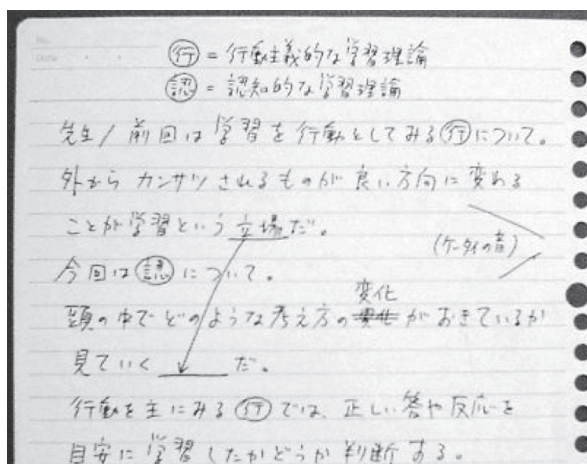 No.
Date
㊝ = 行動主義的な学習理論
認 = 認知的な学習理論
先生/ 前回は学習を行動としてみる行について。
外から カンサツ されるものが 良い方向に変わる
ことが学習という立場だ。
(ケータイの音)
今回は認について。
変化
頭の中でどのような考え方の がおきているか
見ていく だ。
行動を主にみる行では、正しい答や反応を
目安に学習したかどうか判断する。